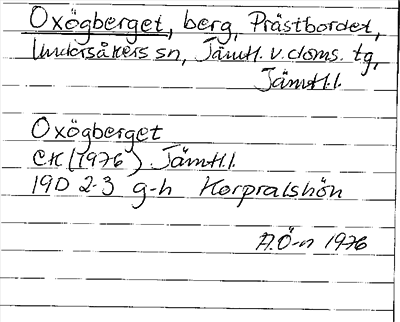 Oxögberget, berg, Prästbordet,
Undersåkers sn, Jämtl. v. doms. tg,
Jämtl.l.
Oxögberget
EK (1976) Jämtl.l.
19D 2-3 g-h Korpralshön
A.Ö-n 1976